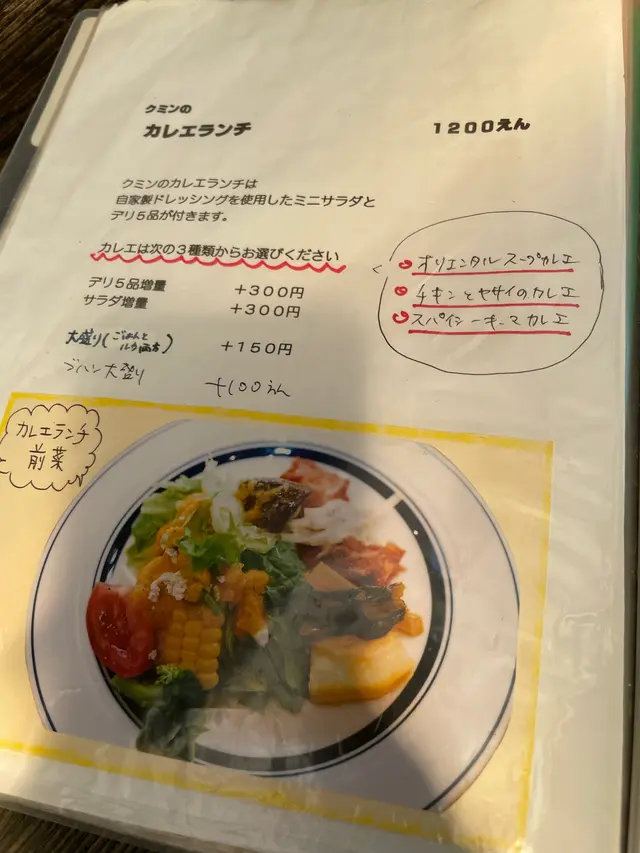 クミンの
カレエランチ 1200えん
クミンのカレエランチは
自家製ドレッシングを使用したミニサラダと
デリ5品が付きます。
カレエは次の3種類からお選びください
オリエンタルスープカレエ
チキンとヤサイのカレエ
スパイシーキーマカレエ
デリ5品増量 +300円
サラダ増量 +300円
大盛り(ごはんとルウ両方) +150円
ゴハン大盛り +100えん
カレエランチ
前菜